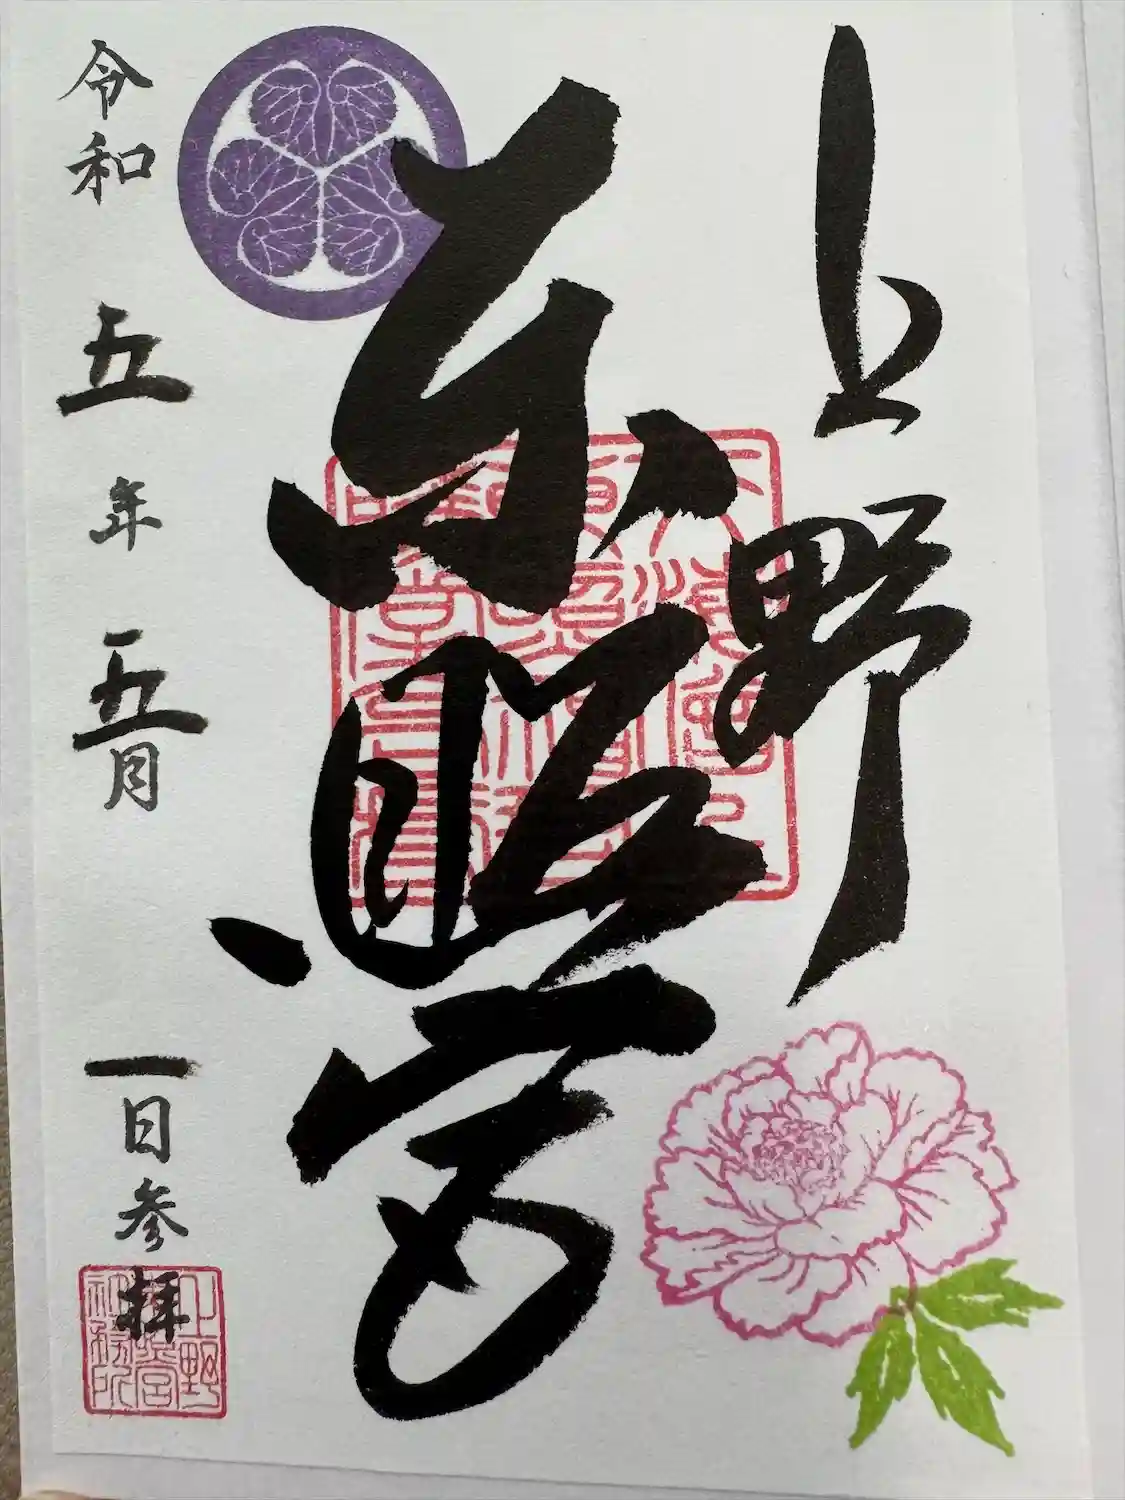 上野
東照宮
令和五年五月一日参拝
上野
東照宮
社務所